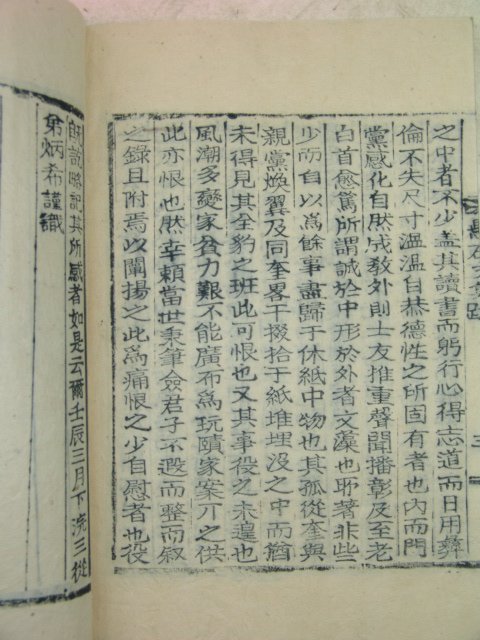 之中者不少盖其讀書而躬行心得志道而日用彛
倫不失尺寸溫溫自恭德性之所固有者也內而門
黨感化自然成敎外則士友推重聲聞播彰及至老
白首愈篤所謂誠於中形於外者文藻也聨著非些
少而自以爲餘事盡歸于休紙中物也其孤從奎與
親黨煥翼及同奎畧干掇拾于紙堆埋沒之中而猶
未得見其全豹之班此可恨也又其事役之未遑也
風潮多變家貧力艱不能廣布爲玩賾家案丌之供
此亦恨也然幸賴當世秉筆僉君子不遐而整而叙
之錄且附焉以闡揚之此爲痛恨之少自慰者也役
旣訖略記其所感者如是云爾壬辰三月下浣三從
弟炳希謹識